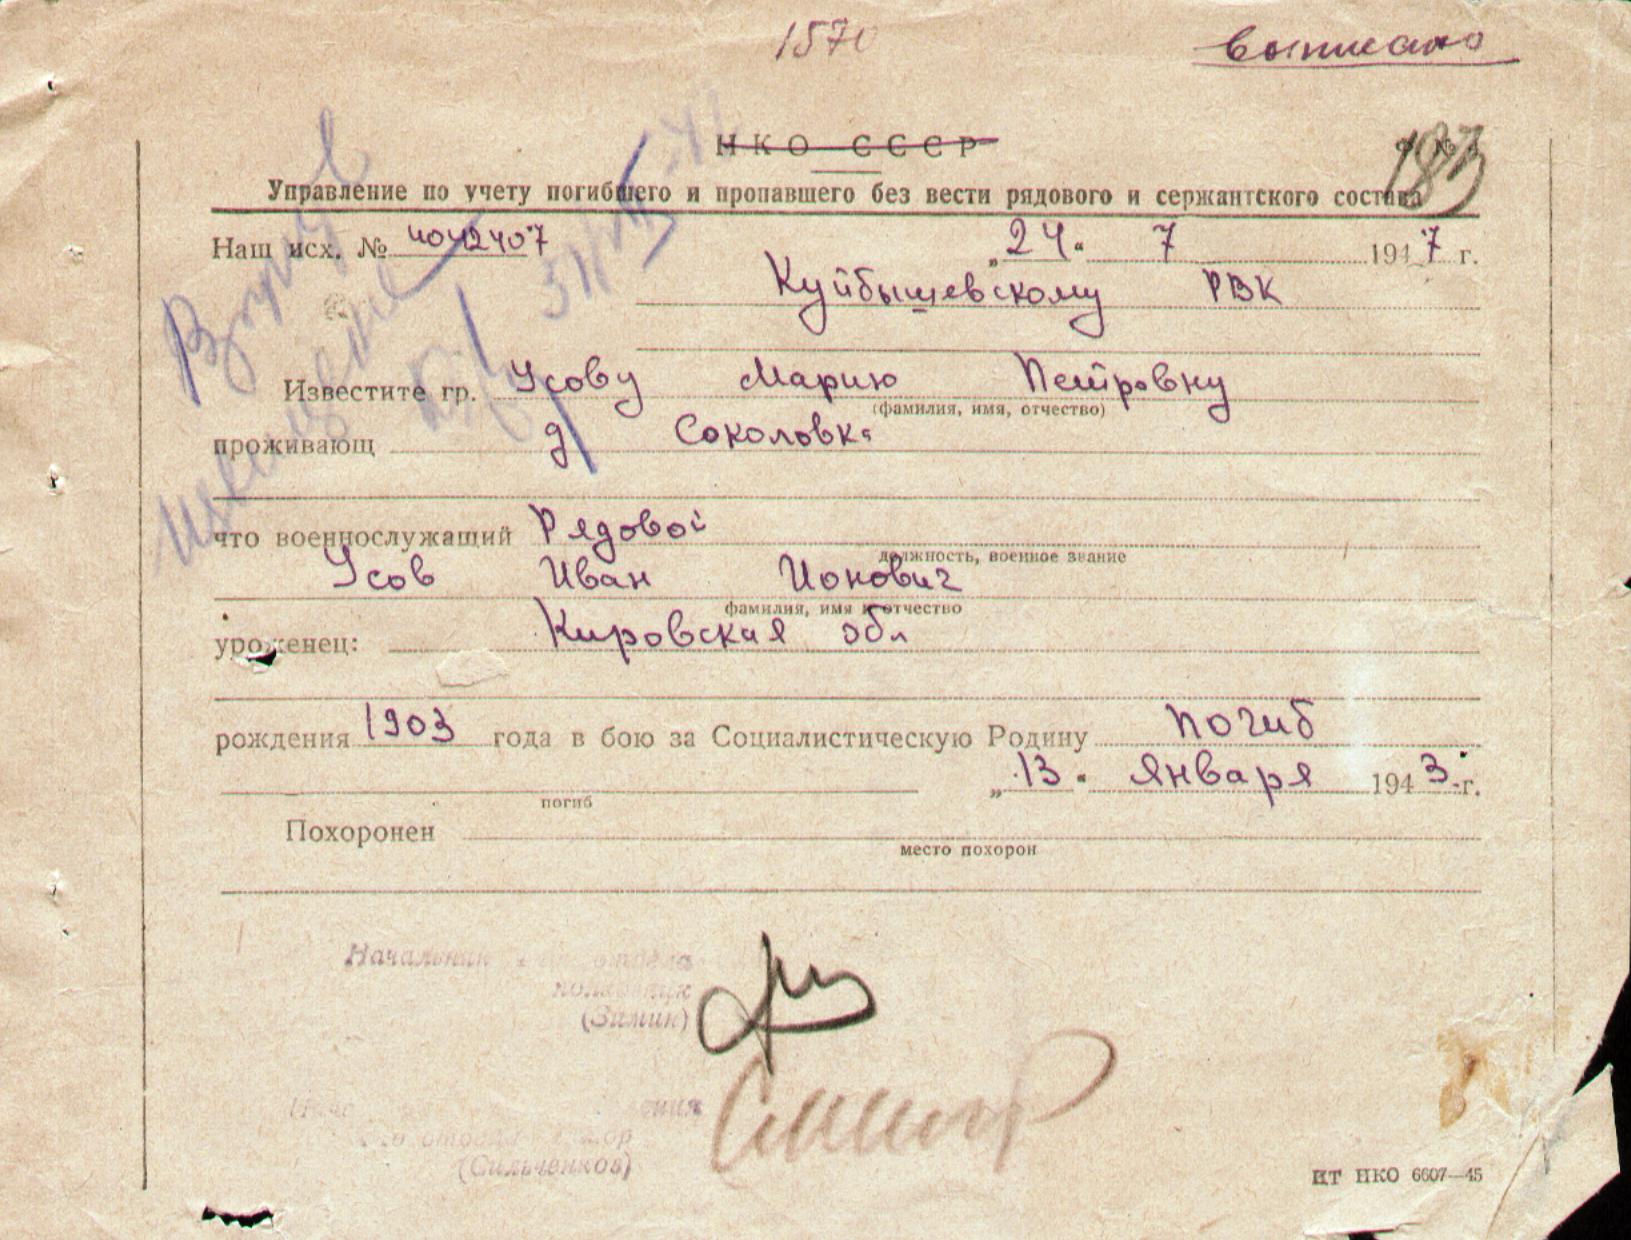 1570
выписано
НКО СССР
183
Управление по учету погибшего и пропавшего без вести рядового и сержантского состава
Наш исх. № 4042407 „24“ 7 1947 г.
Куйбышевскому РВК
Известите гр. Усову Марию Петровну
(фамилия, имя, отчество)
проживающ д Соколовка
что военнослужащий Рядовой
должность, военное звание
Усов Иван Ионович
фамилия, имя и отчество
уроженец: Кировская обл
рождения 1903 года в бою за Социалистическую Родину погиб
„13“ января 1943 г.
погиб
Похоронен
место похорон
Начальник отдела
полковник
(Зимин)
отдела майор
(Сильченков)
ИТ НКО 6607—45